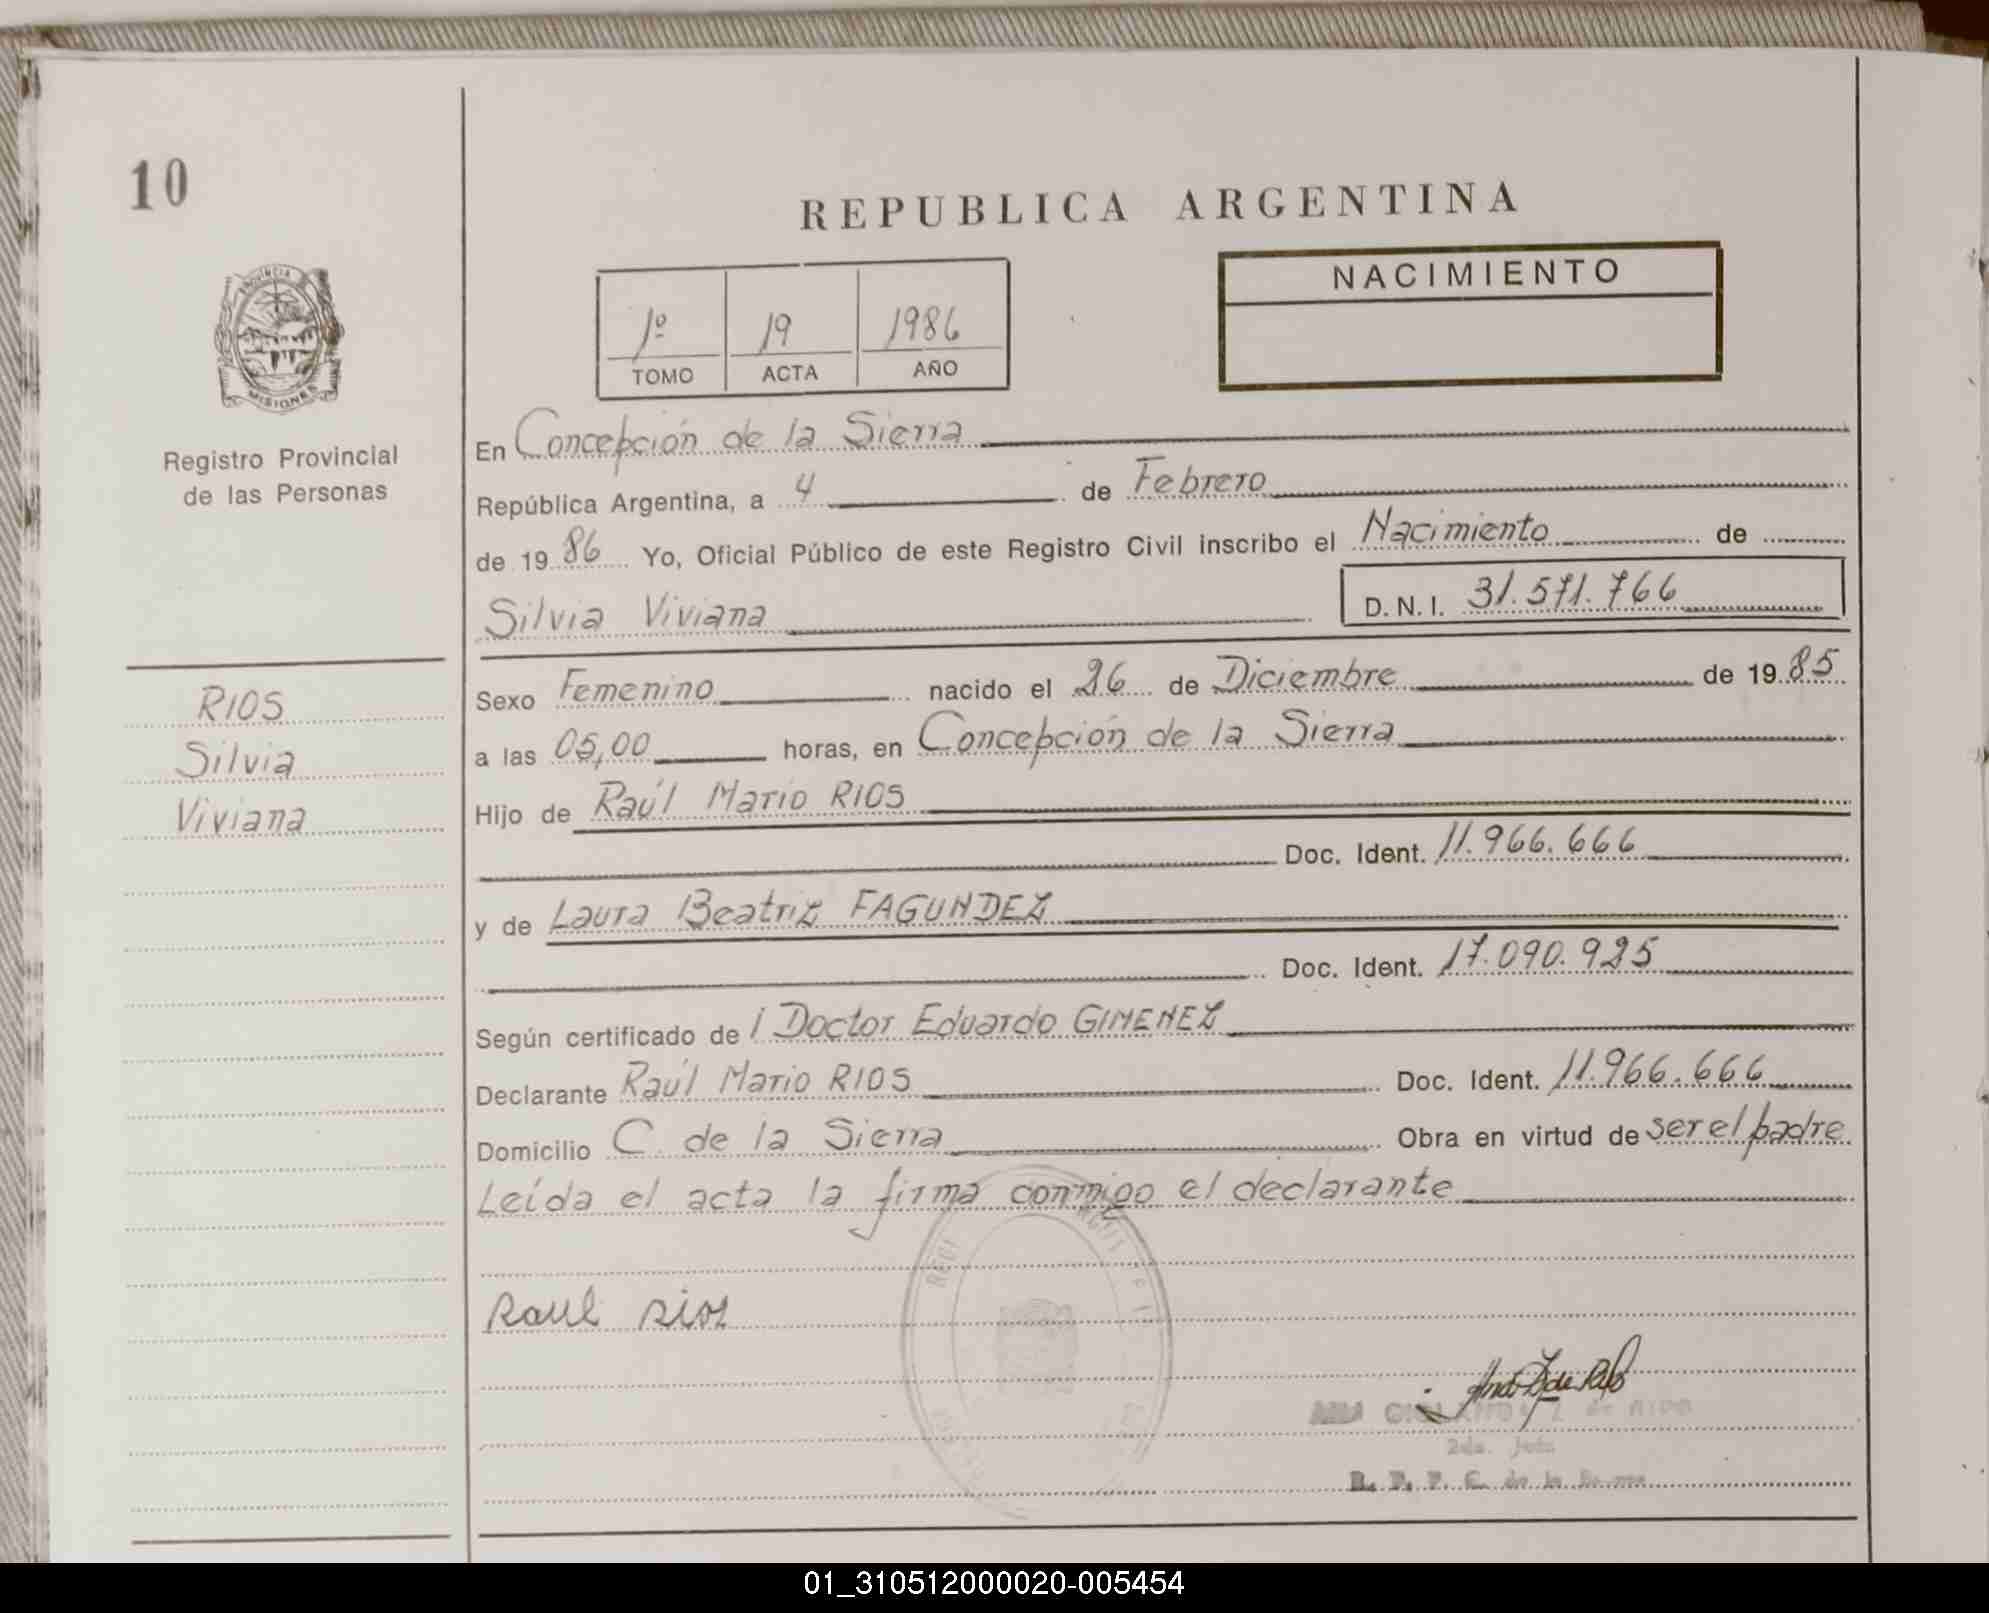 10
REPUBLICA ARGENTINA
PROVINCIA
MISIONES
Registro Provincial
de las Personas
1º 19 1986
TOMO ACTA AÑO
NACIMIENTO
En Concepción de la Sierra
República Argentina, a 4 de Febrero
de 1986 Yo, Oficial Público de este Registro Civil inscribo el Nacimiento de
Silvia Viviana D.N.I. 31.571.766
RIOS
Silvia
Viviana
Sexo Femenino nacido el 26 de Diciembre de 1985
a las 05,00 horas, en Concepción de la Sierra
Hijo de Raúl Mario RIOS
Doc. Ident. 11.966.666
y de Laura Beatriz FAGUNDEZ
Doc. Ident. 17.090.925
Según certificado de l Doctor Eduardo GIMENEZ
Declarante Raúl Mario RIOS Doc. Ident. 11.966.666
Domicilio C. de la Sierra Obra en virtud de ser el padre
Leída el acta la firma conmigo el declarante
Raul Rios
01_310512000020-005454